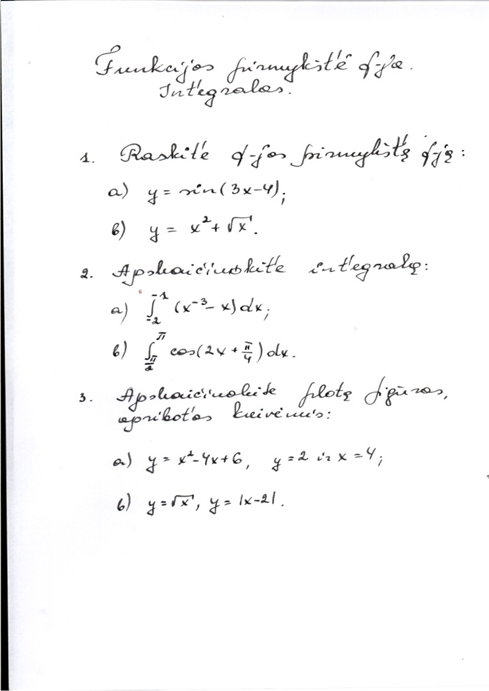 Funkcijos pirmykštė f-ja.
Integralas.
1. Raskite f-jos pirmykštę f-ją:
a) y = sin(3x-4);
b) y = x² + √x.
2. Apskaičiuokite integralą:
a) ∫₋₂⁻¹ (x⁻³ - x) dx;
b) ∫_{π/2}^{π} cos(2x + π/4) dx.
3. Apskaičiuokite plotą figūros,
apribotos kreivėmis:
a) y = x² - 4x + 6, y = 2 ir x = 4;
b) y = √x, y = |x-2|.